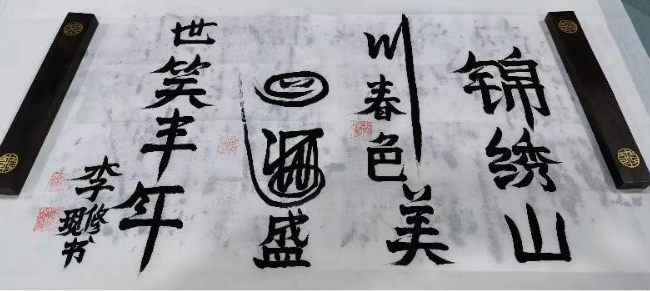 锦绣山
川春色美
日洒盛
世笑丰年
李修现书